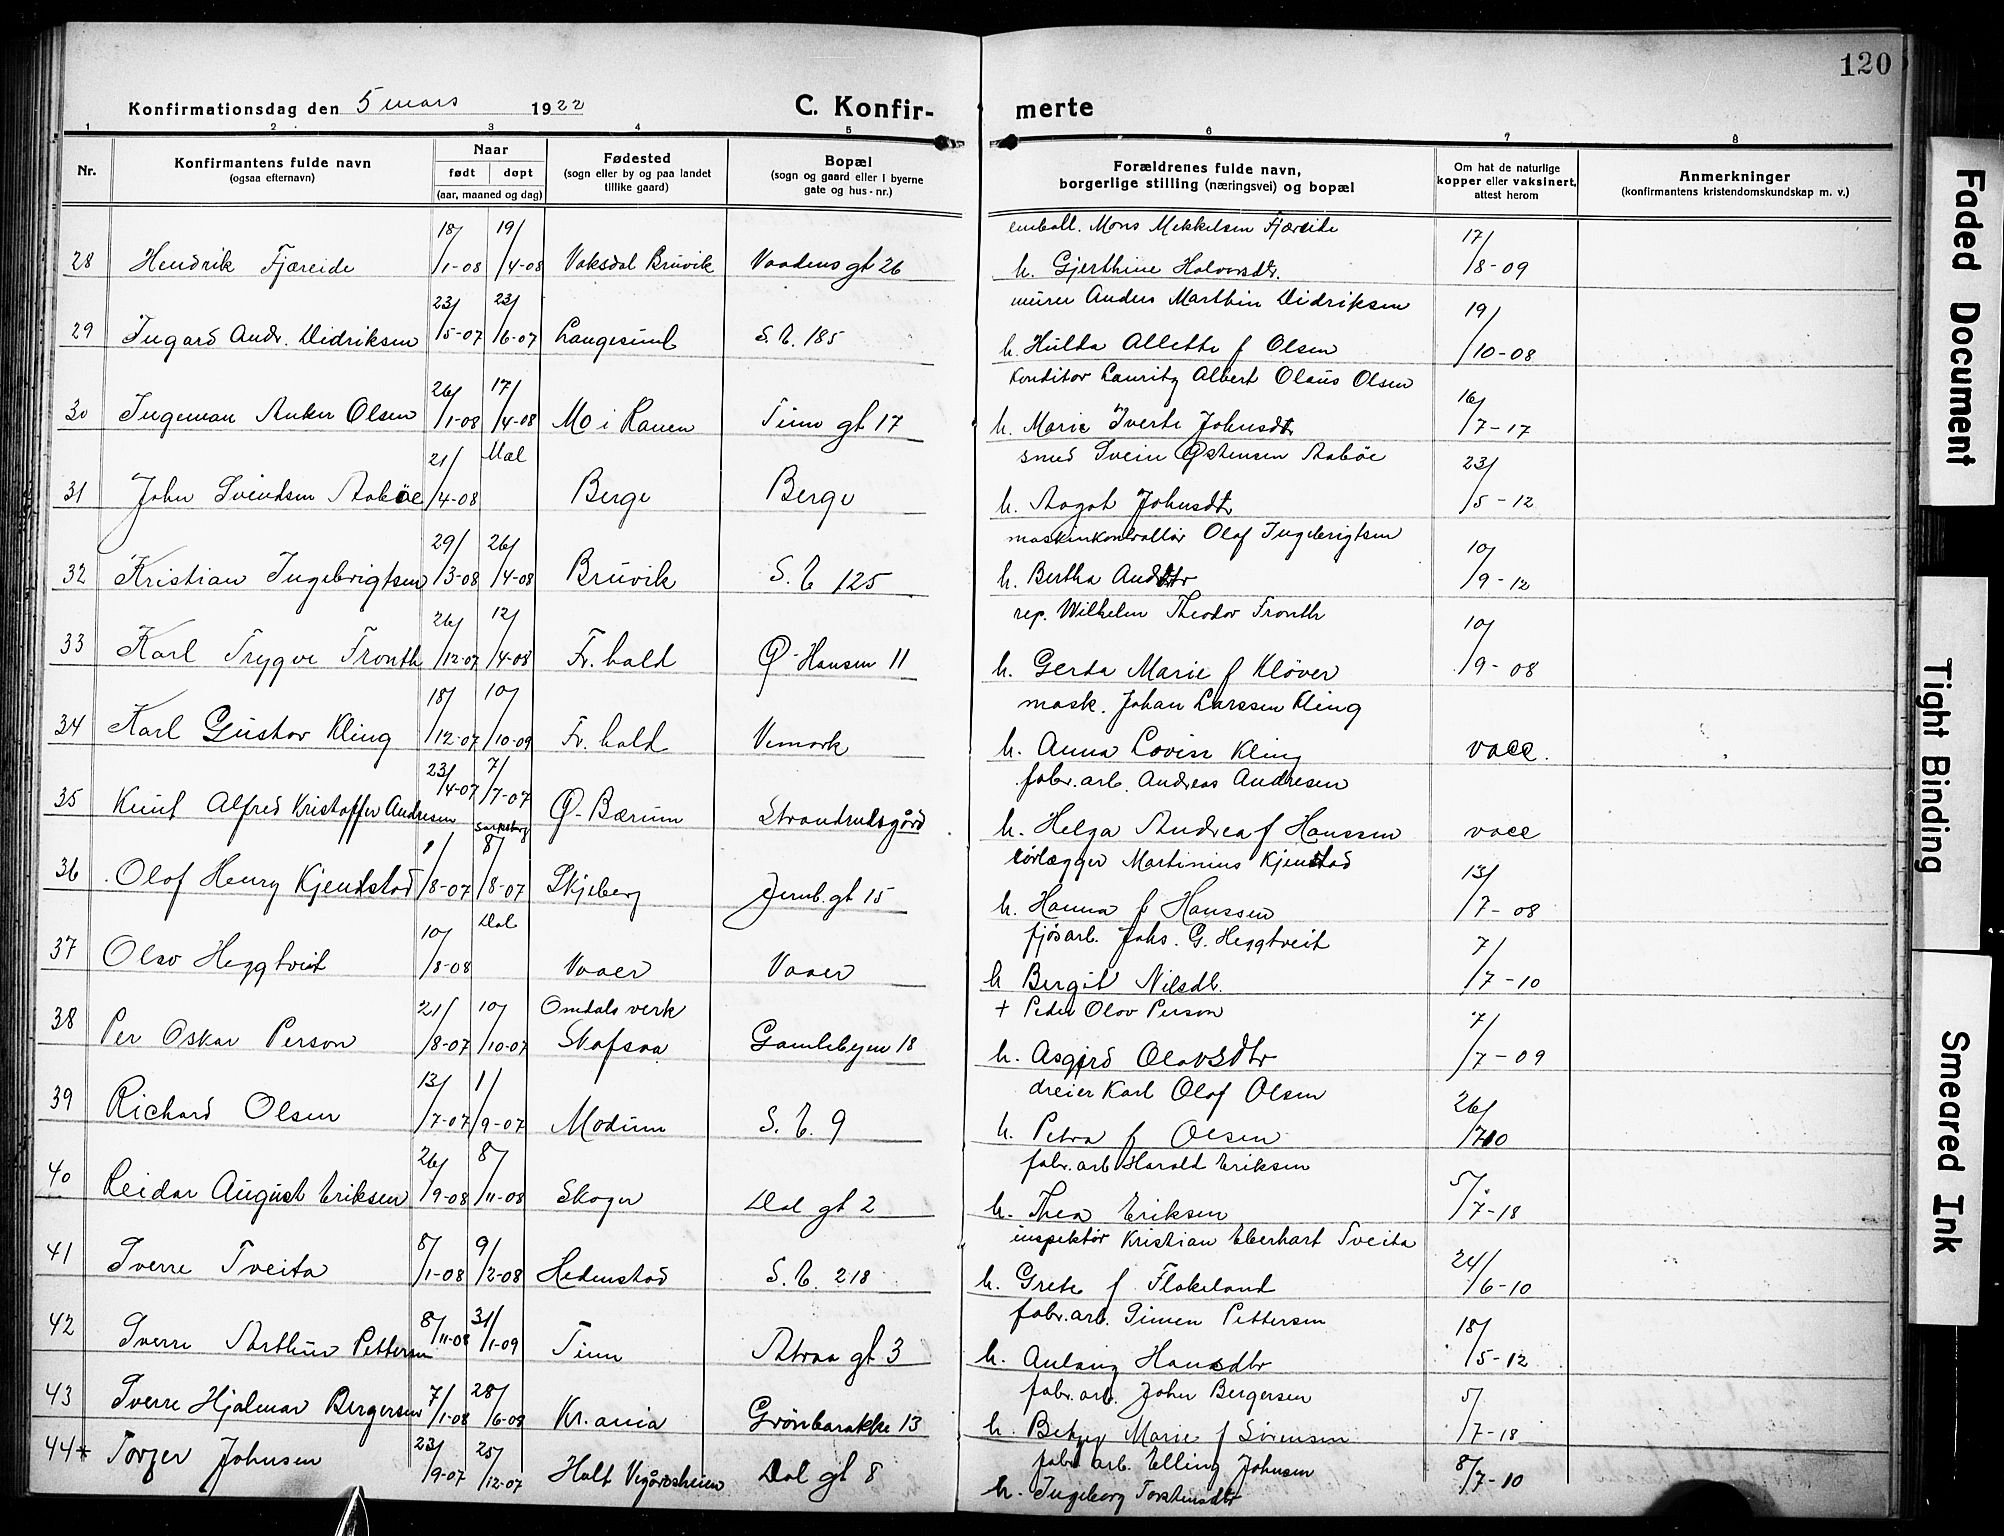 120
Konfirmationsdag den 5 mars 1922
C. Konfir-
merte
1 2 3 4 5 6 7 8
Nr.
Konfirmantens fulde navn
(ogsaa efternavn)
Naar
født døpt
(aar, maaned og dag)
Fødested
(sogn eller by og paa landet
tillike gaard)
Bopæl
(sogn og gaard eller i byerne
gate og hus-nr.)
Forældrenes fulde navn,
borgerlige stilling (næringsvei) og bopæl
Om hat de naturlige
kopper eller vaksinert,
attest herom
Anmerkninger
(konfirmantens kristendomskundskap m. v.)
28 Hendrik Fjæreide 18/1-08 19/4-08 Vaksdal Bruvik Vaadens gt 26 emball. Mons Mekkelsen Fjæreide
h. Gjerthine Halvorsdtr. 17/8-09
29 Ingard Andr. Didriksen 23/5-07 23/6-07 Langesund S. E. 185 murer Anders Marthin Didriksen
h. Hulda Allette f Olsen 19/10-08
30 Ingeman Anker Olsen 26/1-08 17/4-08 Mo i Ranen Tinn gt 17 konditor Lauritz Albert Olaus Olsen
h. Marie Iverte Johnsdtr 16/7-17
31 John Svendsen Aabøe 21/4-08 Mæl Berge Berge smed Svein Østensen Aabøe
h. Aagot Johnsdtr 23/5-12
32 Kristian Ingebrigtsen 29/3-08 26/4-08 Bruvik S. E 125 maskinkontrollør Olaf Ingebrigtsen
h. Bertha Anddtr 10/9-12
33 Karl Trygve Fronth 26/12-07 12/4-08 Fr. hald Ø-Hansen 11 rep. Wilhelm Theodor Fronth
h. Gerda Marie f Kløver 10/9-08
34 Karl Gustav Kling 18/12-07 10/10-09 Fr. hald Vemork mask. Johan Larssen Kling
h. Anna Lovise Kling vacc.
35 Knut Alfred Kristoffer Andresen 23/4-07 7/7-07 Ø-Bærum Strandrudsgård fabr. arb. Andreas Andresen
h. Helga Andrea f Hanssen vacc
36 Olaf Henry Kjendstad 1/8-07 Sarpsborg 8/8-07 Skjeberg Jernb. gt 15 rørlægger Martinius Kjenstad
h. Hanna f Hanssen 13/7-08
37 Olav Heggtveit 10/8-08 Dal Vaaer Vaaer fjøsarb. Johs. G. Heggtveit
h Bergit Nilsdt. 7/7-10
38 Per Oskar Person 21/8-07 10/10-07 Omdals verk Skafsaa Gamlebyen 18 + Peder Olav Person
h. Asgjerd Olavsdtr 7/7-09
39 Richard Olsen 13/7-07 1/9-07 Modum S. E. 9 dreier Karl Olaf Olsen
h. Petra f Olsen 26/7 10
40 Reidar August Eriksen 26/9-08 8/11-08 Skoger Dal gt 2 fabr. arb Harald Eriksen
h. Thea Eriksen 5/7-18
41 Sverre Tveita 8/1-08 9/2-08 Hedenstad S. E. 218 inspektør Kristian Eberhart Tveita
h. Grete f Flakeland 24/6-10
42 Sverre Arthur Pettersen 8/11-08 31/1-09 Tinn Atraa gt 3 fabr. arb. Simen Pettersen
h. Anlaug Hansdtr 18/5-12
43 Sverre Hjalmar Bergersen 7/1-08 28/6-08 Kr.ania Grønbarakke 13 fabr. arb. John Bergersen
h. Betzy Marie f Sørensen 5/7-18
44* Torger Johnsen 23/9-07 25/12-07 Holt Vegårdsheien Dal gt 8 fabr. arb. Elling Johnsen
h. Ingeborg Torstensdtr 8/7-10
Faded Document
Tight Binding
Smeared Ink